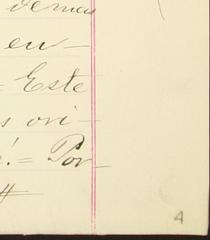 demas
en-
= Este
s ori-
!= Por-
#
4